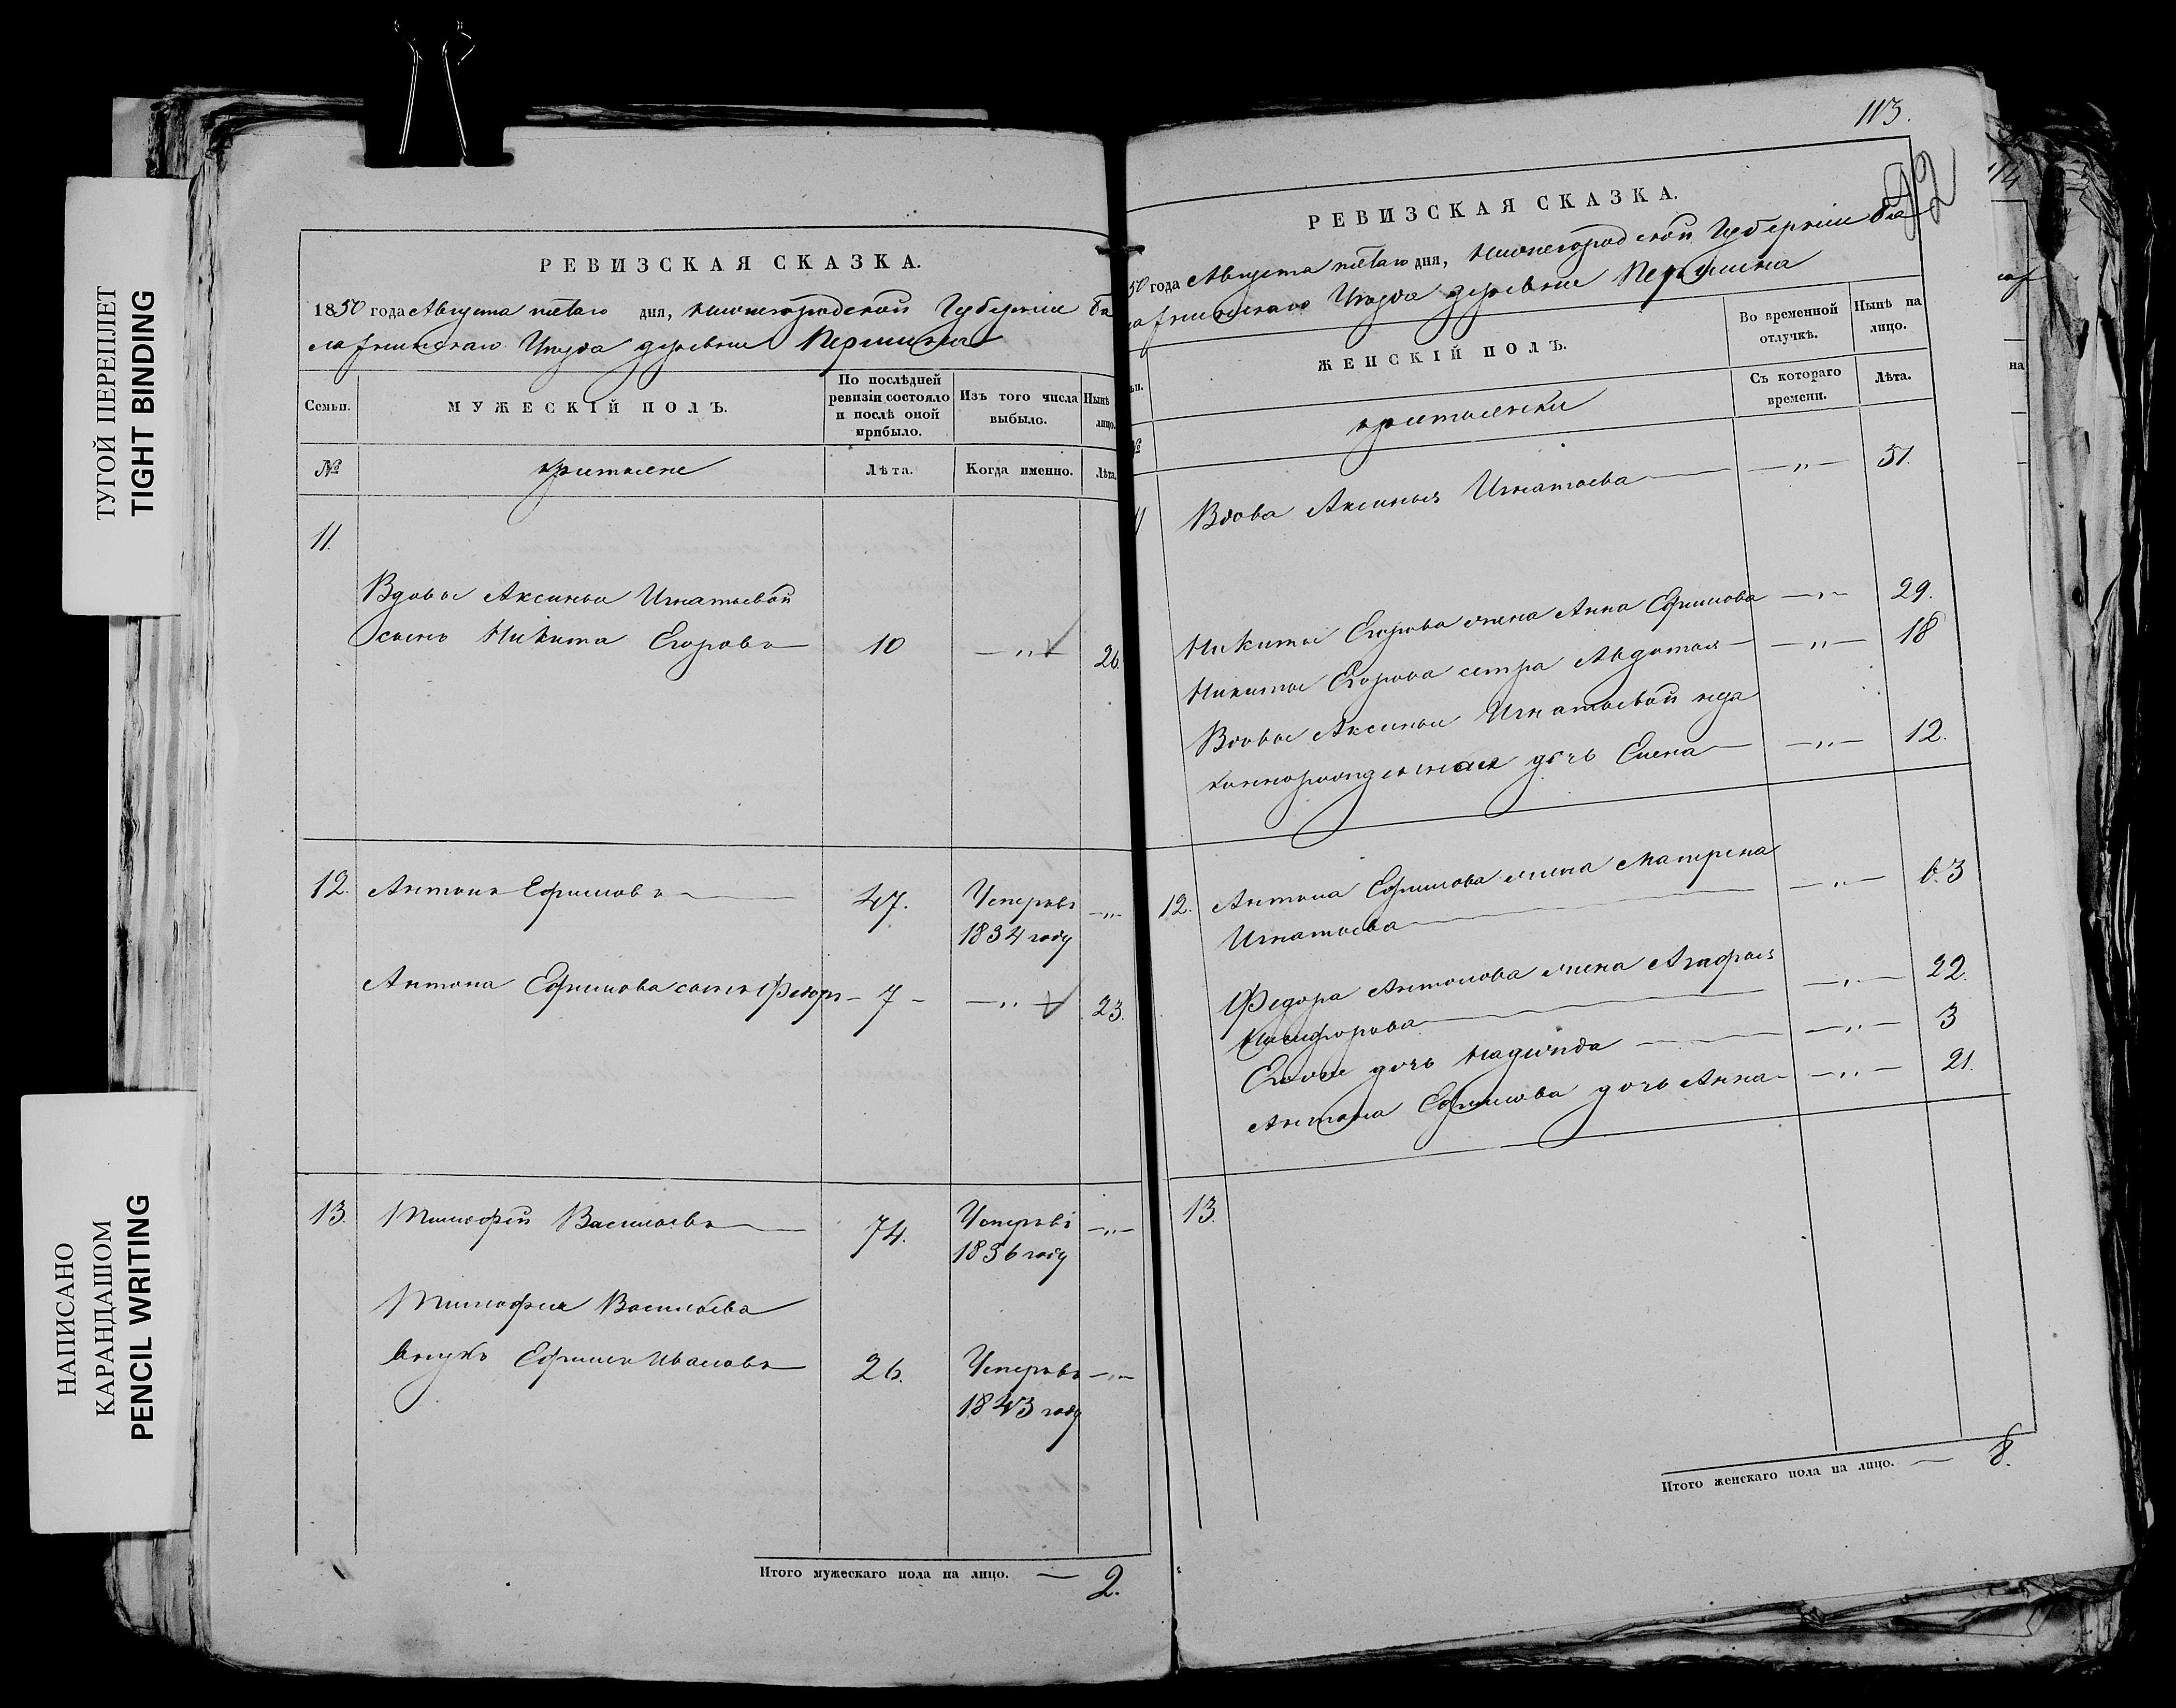 ТУГОЙ ПЕРЕПЛЕТ
TIGHT BINDING
НАПИСАНО
КАРАНДАШОМ
PENCIL WRITING
РЕВИЗСКАЯ СКАЗКА.
1850 года Августа пятаго дня, Нижегородской Губернии Ба
лахнинскаго Уезда деревни Першина
Семьи.
МУЖЕСКІЙ ПОЛЪ.
По послѣдней ревизіи состояло и послѣ оной прибыло.
Изъ того числа выбыло.
Нынѣ лицо.
№
крестьяне
Лѣта.
Когда именно.
Лѣта
11.
Вдовы Аксиньи Игнатьевой
сынъ Никита Егоровъ 10 —„— 26.
12. Антонъ Ефимовъ 47. Умеръ въ —„—
1834 году
Антона Ефимова сынъ Федоръ 7 —„— 23.
13. Тимофей Васильевъ 74. Умеръ въ —„—
1836 году
Тимофея Васильева
внукъ Ефимъ Ивановъ 26. Умеръ въ —„—
1843 году
Итого мужескаго пола на лицо. — 2.
113.
92
РЕВИЗСКАЯ СКАЗКА.
50 года Августа пятаго дня, Нижегородской Губернии Ба
лахнинскаго Уезда деревни Першина
ЖЕНСКІЙ ПОЛЪ.
Во временной отлучкѣ.
Нынѣ на лицо.
№
крестьянки
Съ котораго времени.
Лѣта.
11 Вдова Аксинья Игнатьева —„— 51.
Никиты Егорова жена Анна Ефимова —„— 29.
Никиты Егорова сестра Авдотья —„— 18
Вдовы Аксиньи Игнатьевой неза
коннорожденная дочь Елена —„— 12.
12. Антона Ефимова жена Матрена —„— 63
Игнатьева
Федора Антонова жена Агафья —„— 22.
Никифорова
Ево же дочь Надежда —„— 3
Антона Ефимова дочь Анна —„— 21.
13.
Итого женскаго пола на лицо. — 8.
114
на